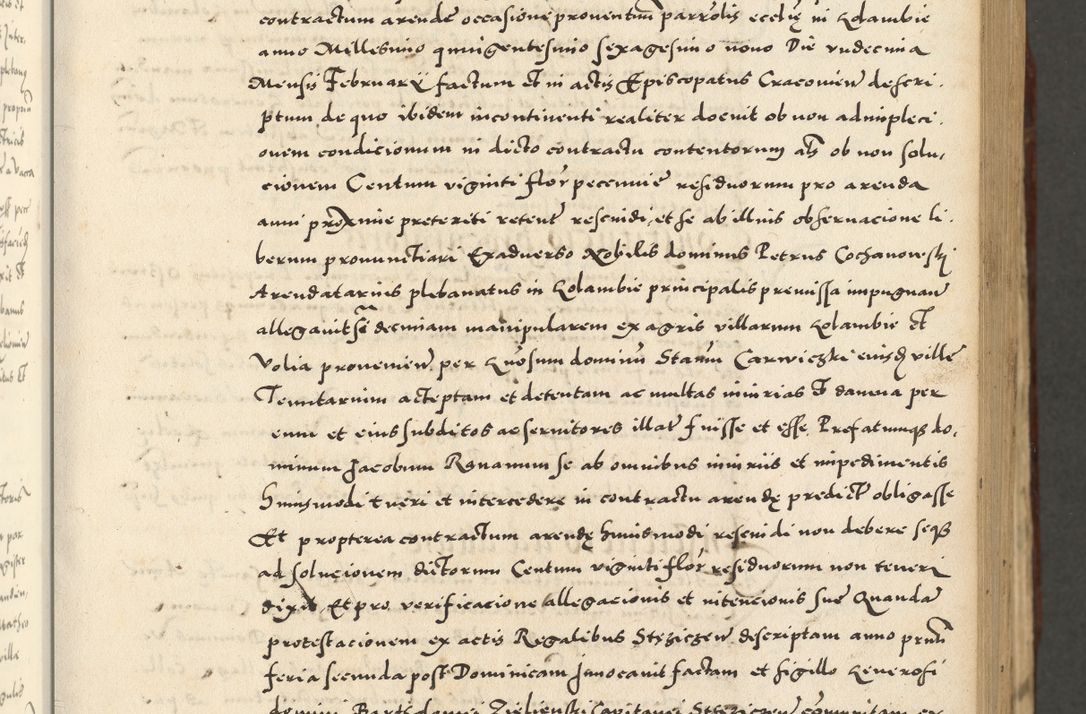 contractum arendę occasione proventuum parrolis ecclię in Kolambie
anno Millesimo quingentesimo sexagesimo nono Die undecima
Mensis Februarii factum Et in actis Episcopatus Cracovien descri-
ptum de quo ibidem incontinenti realiter docuit ob non adimpleci-
onem condicionum in dicto contractu contentorum als ob non solu-
cionem Centum viginti flor pecunie residuorum pro arenda
anni proxime preteriti retent rescindi, et se ab illius observacione li-
berum pronunctiari Exadverso Nobilis dominus Petrus Cochanovesky
Arendatarius plebanatus in Kolambie principalis premissa impugnan
allegavit se decimam manipularem ex agris villarum Kolambie Et
Volia provenien per generosum dominum Stanm Carwiczki eiusdem ville
Tenutarium acceptam et detentam ac multas iniurias Et damna per
eum et eius subditos ac servitores illat fuisse et esse. Prefatumque do-
minum Jacobum Rananum se ab omnibus iniuriis et impedimentis
huiusmodi tueri et intercedere in contractu arendę predict obligasse
Et propterea contractum arendę huiusmodi rescindi non debere seque
ad solucionem dictorum Centum viginti flor residuorum non teneri
dixit Et pro verificacione allegacionis et intencionis sue Quandam
protestacionem ex actis Regalibus Stęziczen descriptam anno prnti
feria secunda post Dominicam Invocavit factam et sigillo generosi
domini Bartholomei Zielienski Capitanei Stęziczen communitam ex